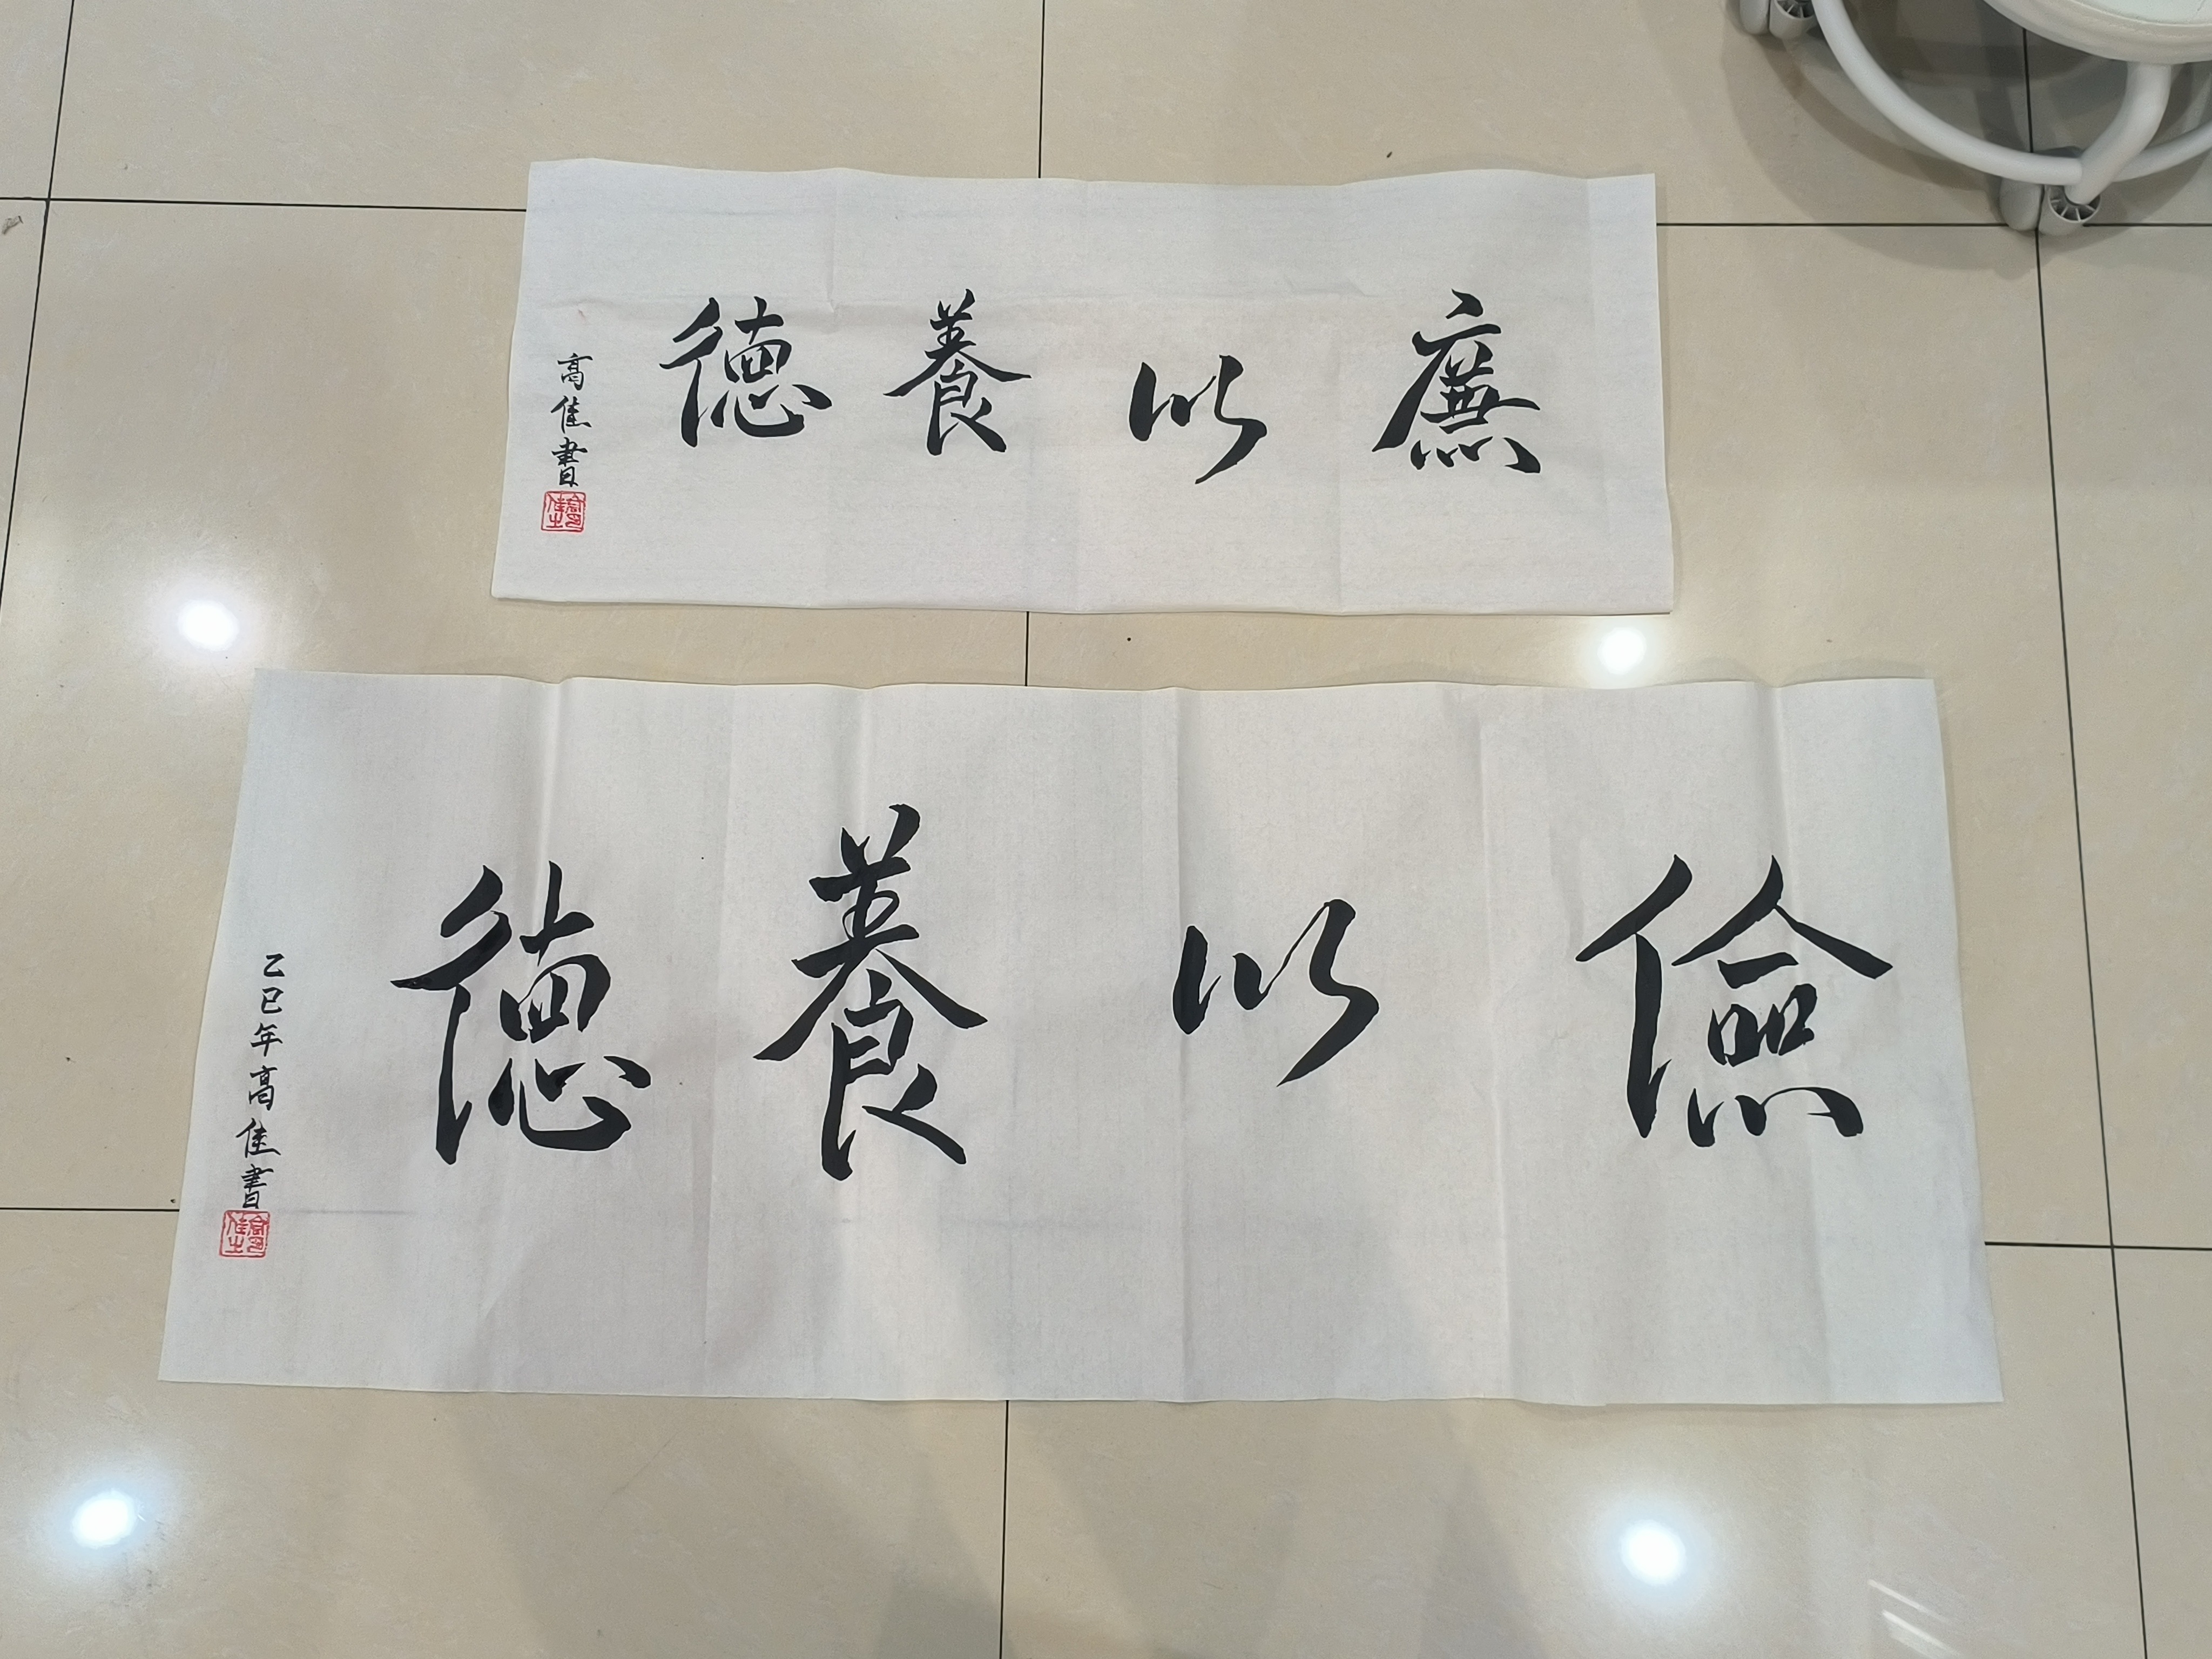 廉以養德
高佳書
儉以養德
乙巳年高佳書